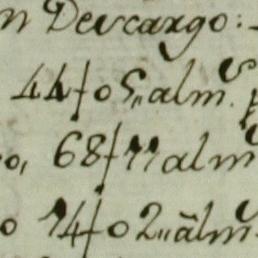 n Descargo:-
44f 05,, alm.s p
o, 68f 11 alm.s
o 14f 02,, alm.s